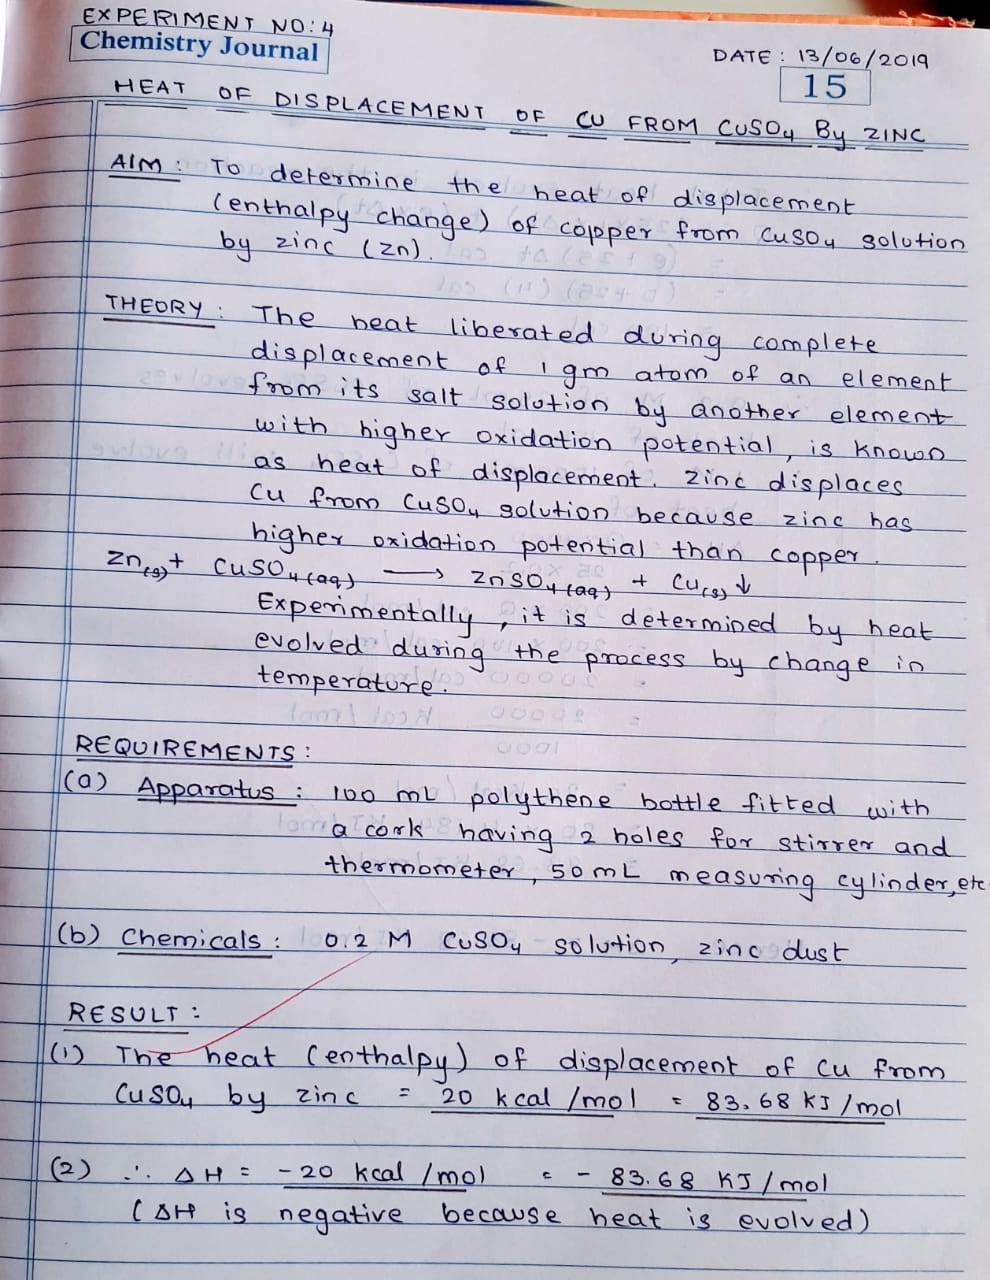 EXPERIMENT NO: 4
Chemistry Journal
DATE : 13/06/2019
15
HEAT OF DISPLACEMENT OF CU FROM CUSO4 By ZINC
AIM : To determine the heat of displacement
(enthalpy change) of copper from CuSO4 solution
by zinc (zn).
THEORY : The heat liberated during complete
displacement of 1 gm atom of an element
from its salt solution by another element
with higher oxidation potential, is known
as heat of displacement. Zinc displaces
Cu from CuSO4 solution because zinc has
higher oxidation potential than copper.
Zn(s) + CUSO4(aq) → ZnSO4(aq) + Cu(s) ↓
Experimentally, it is determined by heat
evolved during the process by change in
temperature.
REQUIREMENTS :
(a) Apparatus : 100 mL polythene bottle fitted with
a cork having 2 holes for stirrer and
thermometer, 50 mL measuring cylinder, etc
(b) Chemicals : 0.2 M CuSO4 solution, zinc dust
RESULT :
(1) The heat (enthalpy) of displacement of Cu from
CuSO4 by zinc = 20 kcal /mol = 83.68 KJ/mol
(2) ∴ ΔH = -20 kcal /mol = - 83.68 KJ/mol
(ΔH is negative because heat is evolved)